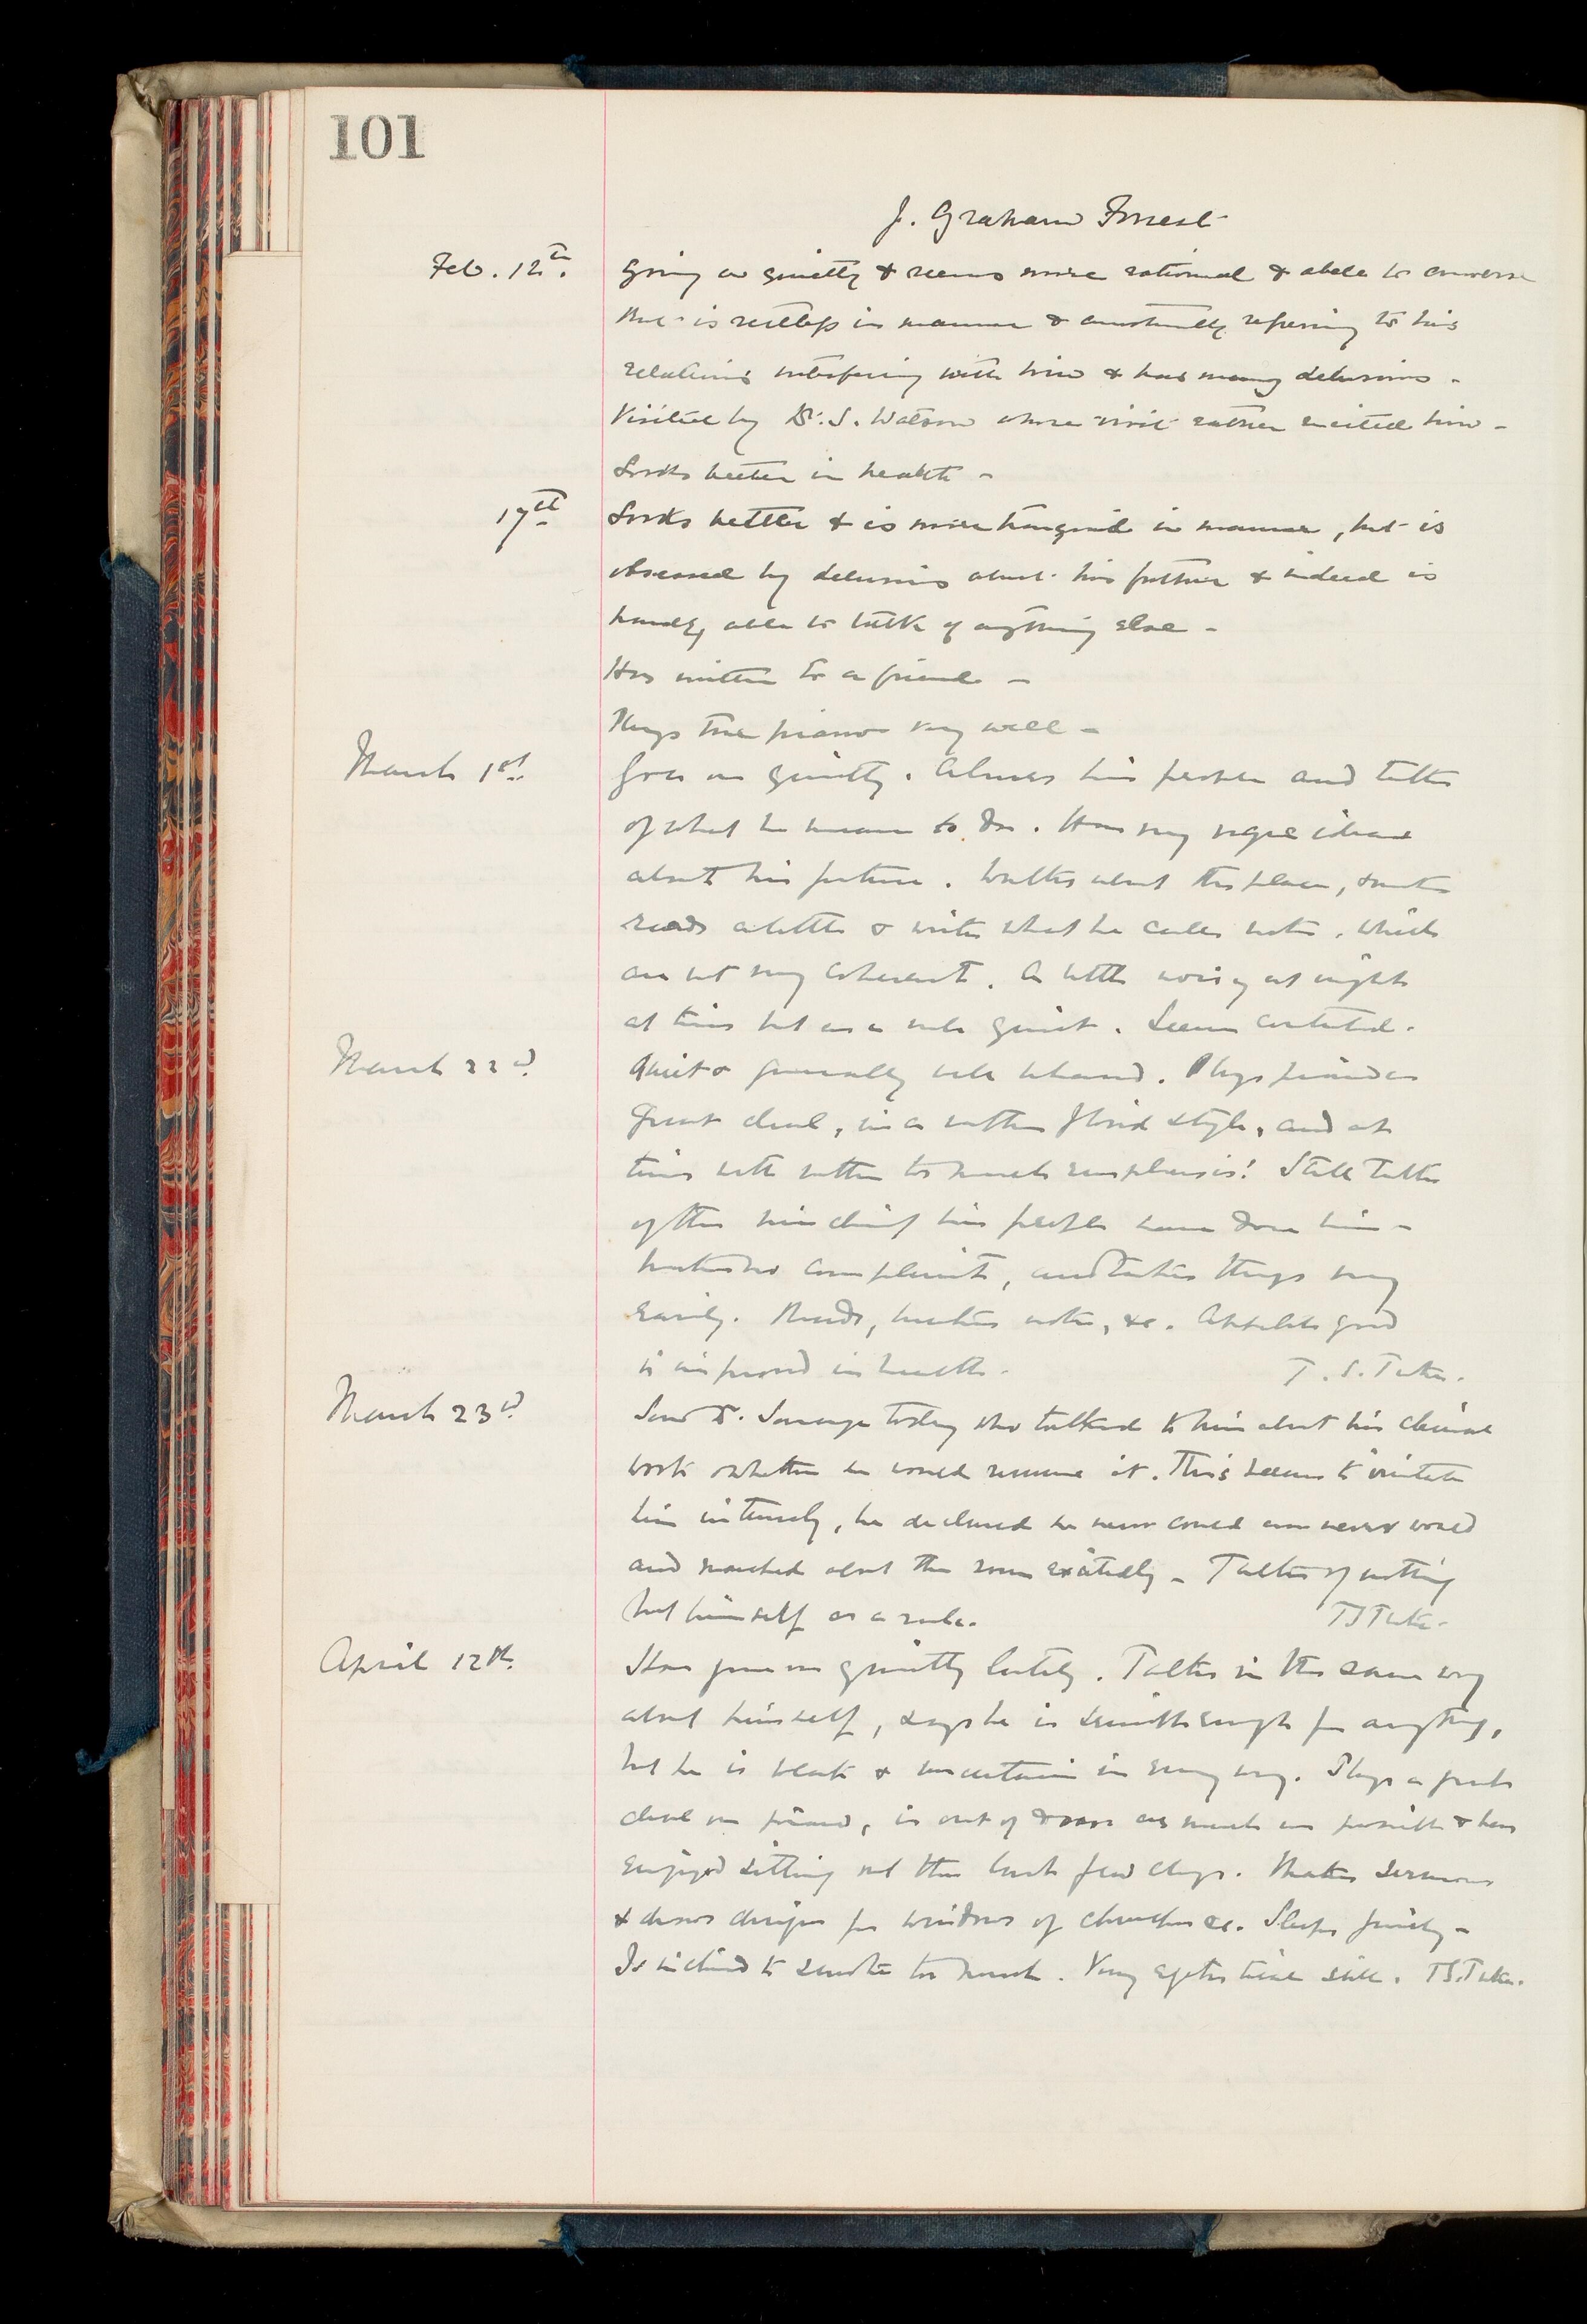 101
J. Graham Forrest
Feb. 12th. Going on quietly & seems more rational & able to converse
but is restless in manner & constantly referring to his
relations interfering with him & has many delusions -
Visited by Dr. S. Watson whose visit rather excited him -
Looks better in health -
17th Looks better & is more tranquil in manner, but is
obsessed by delusions about his father & indeed is
hardly able to talk of anything else -
Has written to a friend -
Plays the piano very well -
March 1st. Goes on quietly. Abuses his people and talks
of what he means to do. Has very vague ideas
about his future. Walks about the place, smokes
reads a little & writes what he calls notes, which
are not very coherent. A little noisy at night
at times but as a rule quiet. Seems contented.
March 22d. Quiet & generally well behaved. Plays piano a
great deal, in a rather florid style, and at
times with rather too much emphasis! Still talks
of the mischief his people have done him -
makes no complaints, and takes things very
easily. Reads, writes notes, &c. Appetite good
is improved in health. T. S. Tuke.
March 23d. Saw Dr. Savage today who talked to him about his clerical
work & whether he would resume it. This seems to irritate
him intensely, he declared he never could and never would
and marched about the room excitedly - Talks of nothing
but himself as a rule. TSTuke.
April 12th. Has gone on quietly lately. Talks in the same way
about himself, says he is well enough for anything,
but he is weak & uncertain in every way. Plays a great
deal on piano, is out of doors as much as possible & has
enjoyed sitting out the last few days. Makes sermons
& draws designs for windows of churches &c. Sleeps fairly -
Is inclined to smoke too much. Very egotistical still. TS.Tuke.